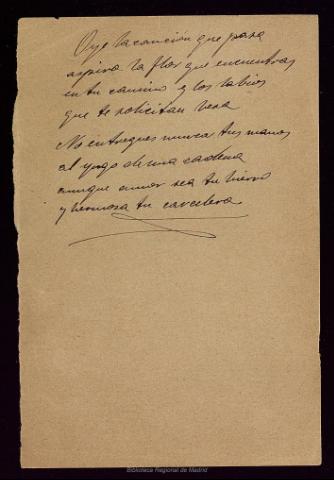 Oye la canción que pasa
aspira la flor que encuentras
en tu camino y los labios
que te solicitan besa
No entregues nunca tus manos
al yugo de una cadena
aunque amor sea tu hierro
y hermosa tu carcelera
Biblioteca Regional de Madrid